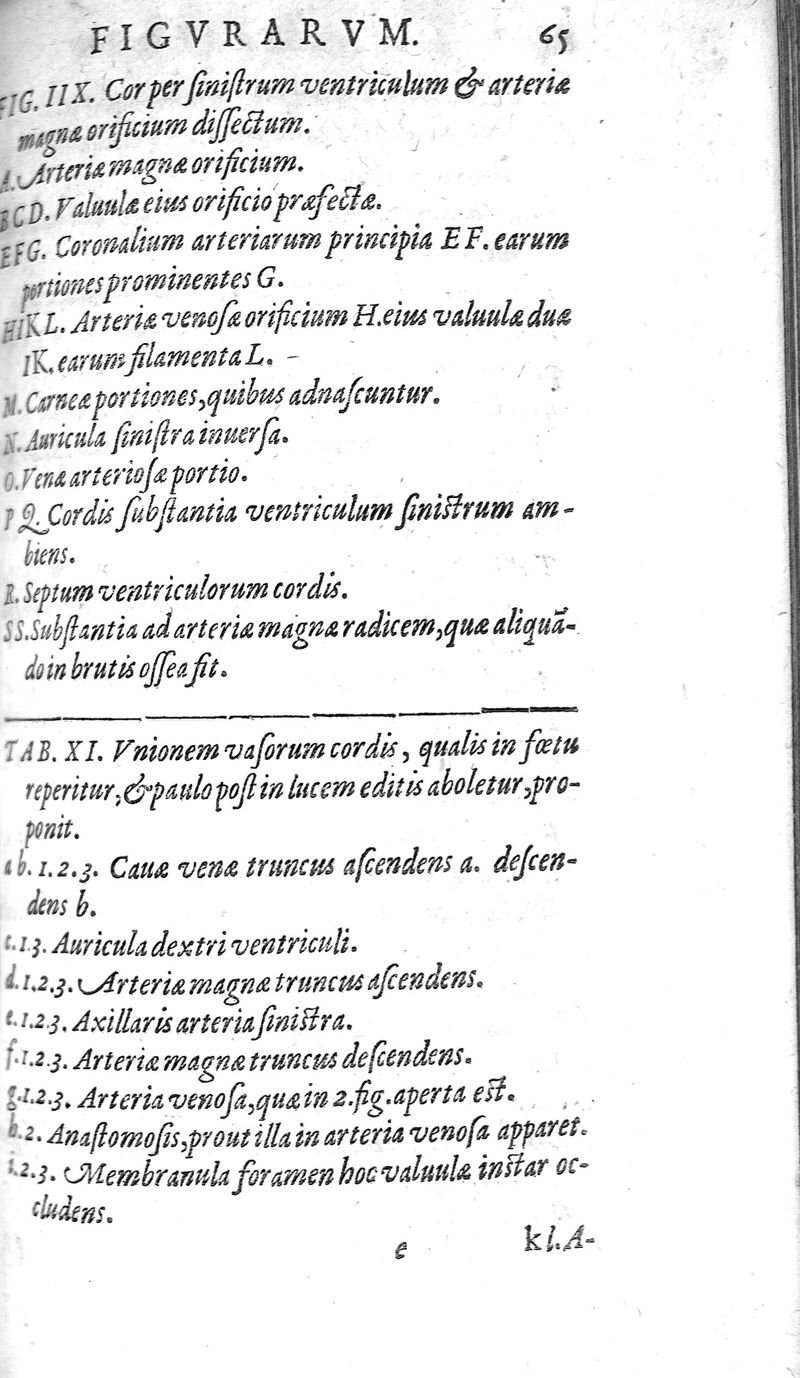 FIGVRARVM. 65
FIG. IIX. Cor per ſiniſtrum ventriculum & arteriæ
magnæ orificium diſſectum.
A. Arteriæ magnæ orificium.
BCD. Valuulæ eius orificio præfectæ.
EFG. Coronalium arteriarum principia EF. earum
portiones prominentes G.
HIKL. Arteriæ venoſæ orificium H. eius valuulæ duæ
IK. earum filamenta L.
M. Carneæ portiones, quibus adnaſcuntur.
N. Auricula ſiniſtra inuerſa.
O. Venæ arterioſæ portio.
P Q. Cordis ſubſtantia ventriculum ſiniſtrum am-
biens.
R. Septum ventriculorum cordis.
SS. Subſtantia ad arteriæ magnæ radicem, quæ aliquā-
do in brutis oſſea fit.
TAB. XI. Vnionem vaſorum cordis, qualis in fœtu
reperitur, & paulo poſt in lucem editis aboletur, pro-
ponit.
ab. 1.2.3. Cauæ venæ truncus aſcendens a. deſcen-
dens b.
c. 1.3. Auricula dextri ventriculi.
d. 1.2.3. Arteriæ magnæ truncus aſcendens.
e. 1.2.3. Axillaris arteria ſiniſtra.
f. 1.2.3. Arteriæ magnæ truncus deſcendens.
g. 1.2.3. Arteria venoſa, quæ in 2. fig. aperta eſt.
h. 2. Anaſtomoſis, prout illa in arteria venoſa apparet.
i. 2.3. Membranula foramen hoc valuulæ inſtar oc-
cludens.
e kl. A-